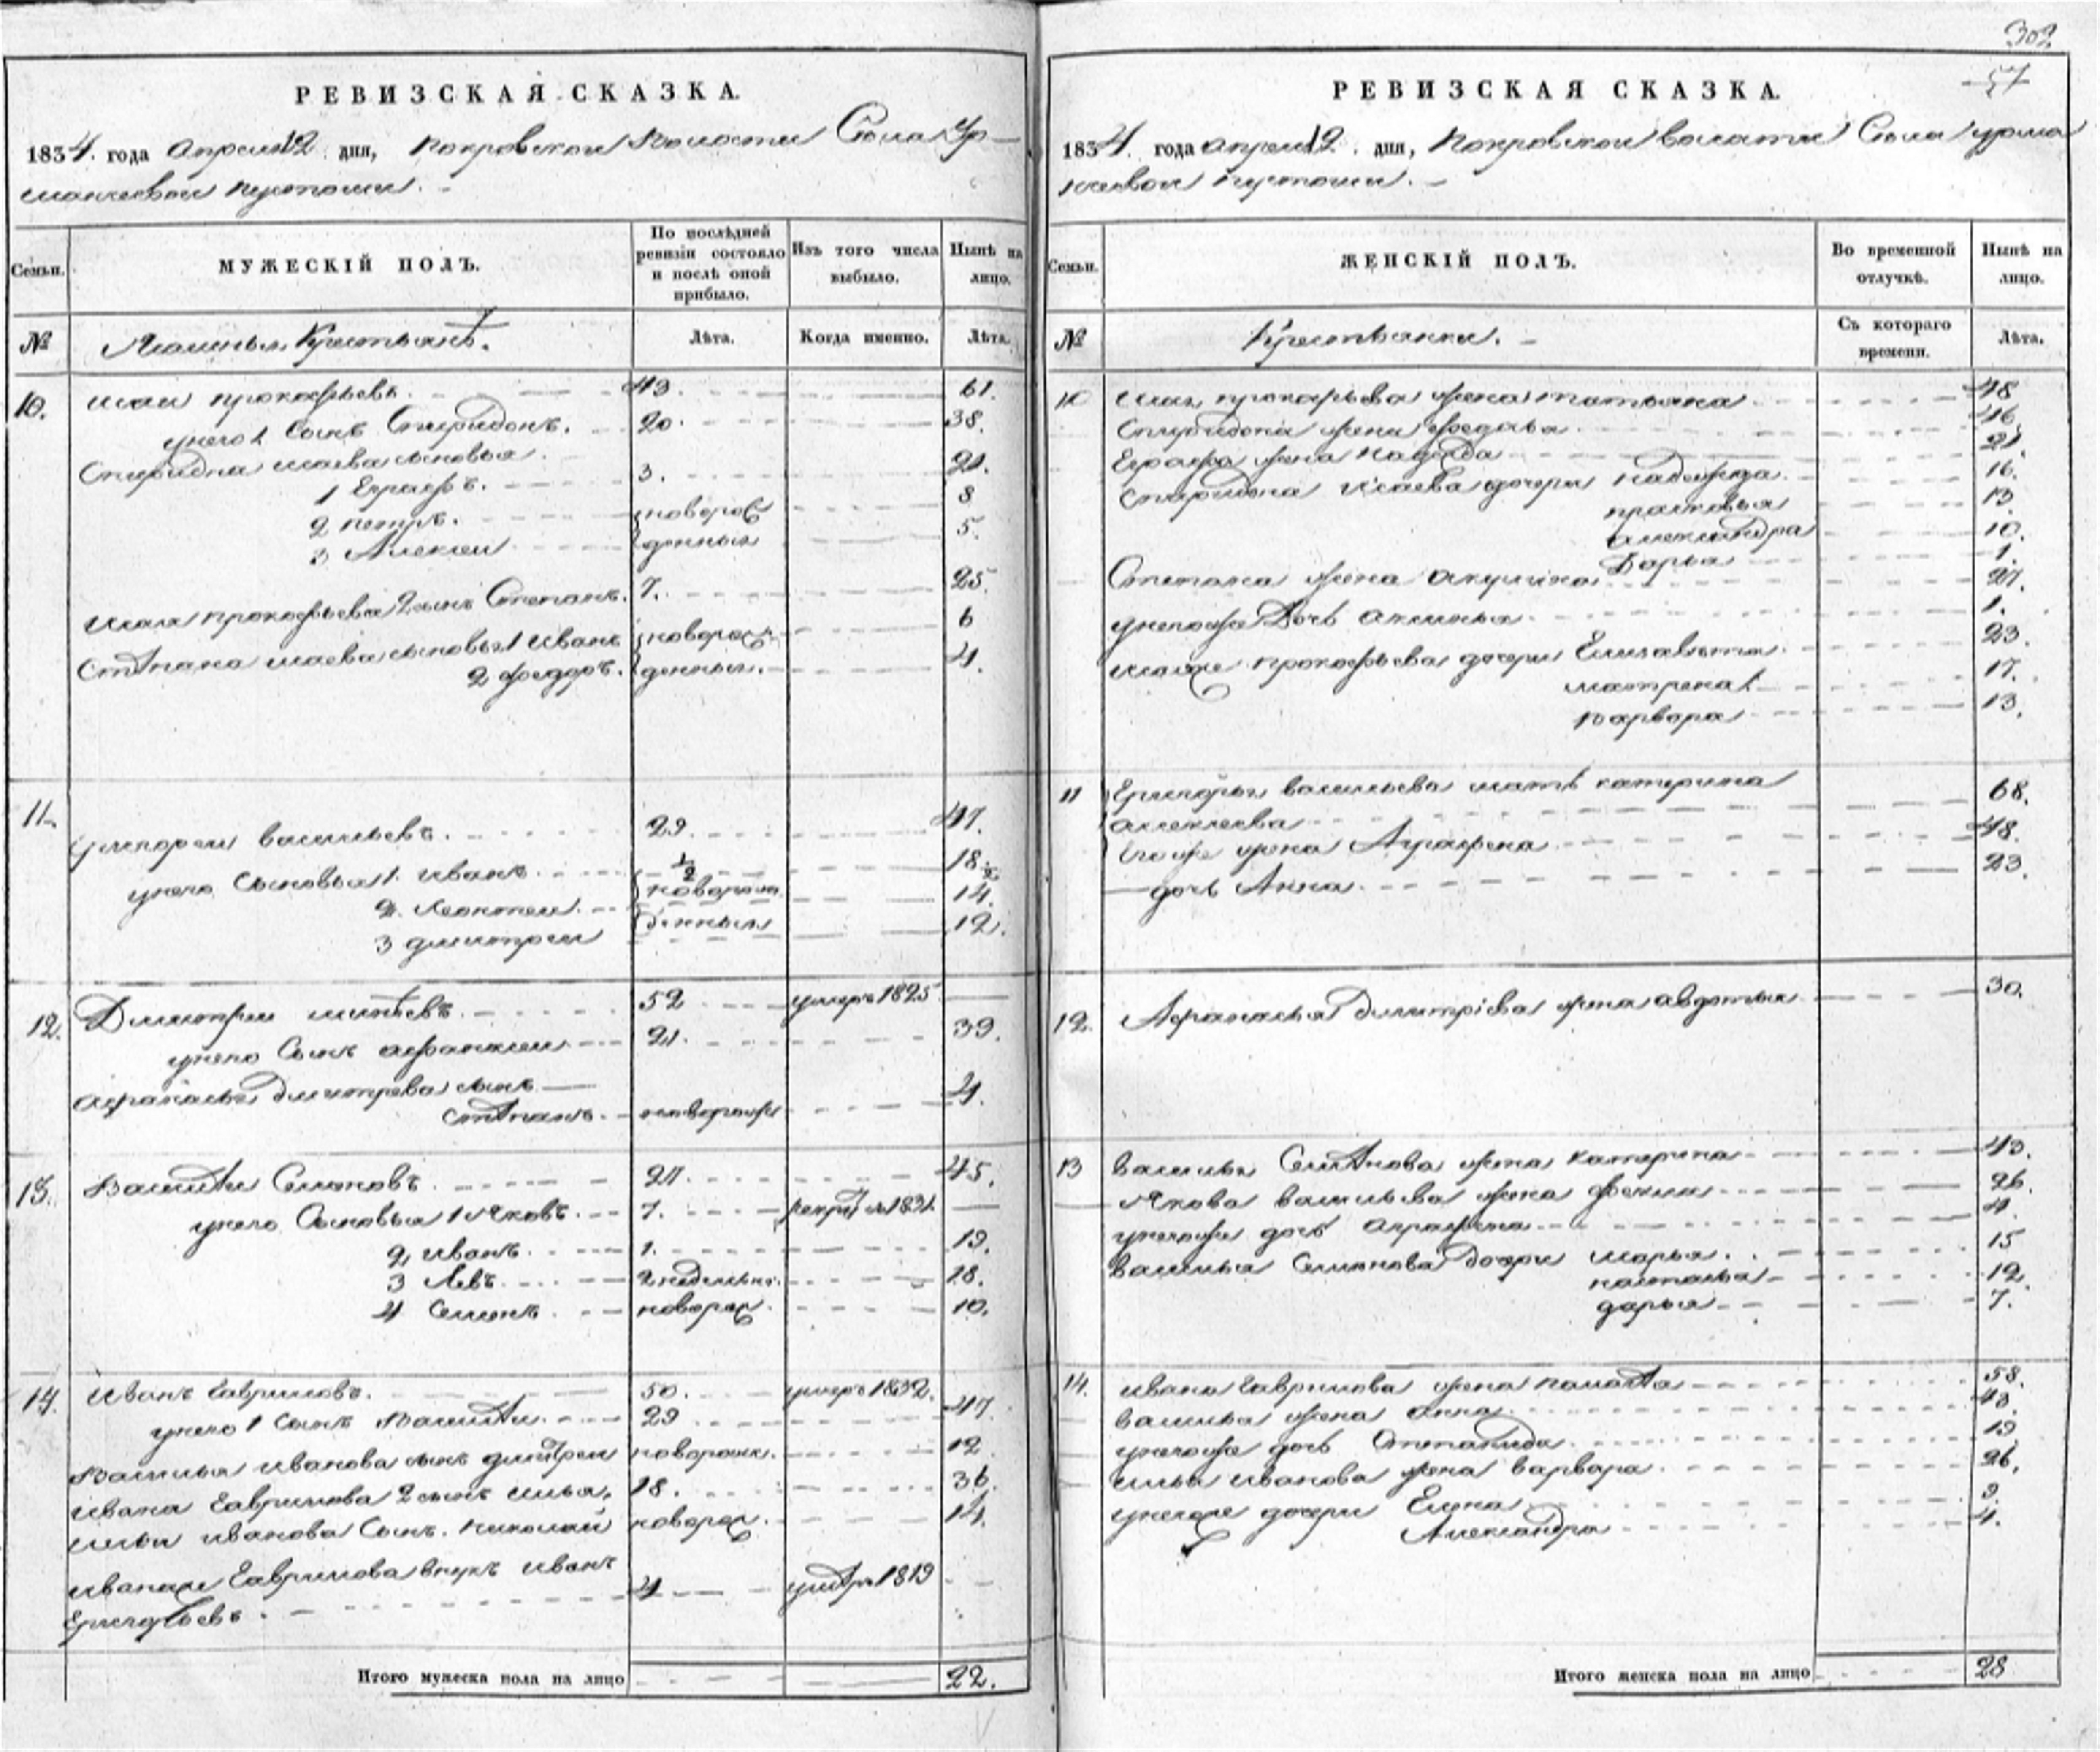 РЕВИЗСКАЯ СКАЗКА.
1834. года Апреля 12 дня, Покровской Волости Села Ур-
манчевой пустоши. -
Семьи.
МУЖЕСКІЙ ПОЛЪ.
По послѣдней ревизіи состояло и послѣ оной прибыло.
Изъ того числа выбыло.
Нынѣ на лицо.
№
Крестьянѣ.
Лѣта.
Когда именно.
Лѣта.
10. Исай прокофьевъ. 43. 61.
унего 1 Сынъ Спиридонъ. 20. 38.
Спиридна исаева сыновья
1 Евграфъ. 3. 21.
2 петръ. новорож 8
3 Алексей денныя 5.
Исая прокофьева 2 сынъ Степанъ. 7. 25.
Стѣпана исаева сыновья 1 Иванъ новорож 6
2 фѣдоръ. денныя. 4.
11. Григорей васильевъ. 29. 47.
унего Сыновья 1. иванъ. 1/2 18 1/2
2. Леонтей. новорож 14.
3 дмитрей денныя 12.
12. Дмитрей 52 умеръ 1825
унего Сынъ афанасей 21. 39.
Афанасья дмитрева сынъ
стѣпанъ. новорож 4.
13. Василѣй Семоновъ. 27. 45.
унего Сыновья 1 Яковъ. 7. 1831.
2 иванъ. 1. 19.
3 Левъ. 2 недельнъ. 18.
4 Семонъ. новорож. 10.
14. Иванъ Гавриловъ. 50. умеръ 1832.
унего 1 Сынъ Василѣй. 29 47.
Василья иванова сынъ дмитрей новорожд. 12
Ивана Гаврилова 2 сынъ илья. 18. 36.
ильи иванова Сынъ. Николай новорож. 14.
Ивана Гаврилова внукъ иванъ
Григорьевъ. 4 умѣръ 1819
Итого мужеска пола на лицо 22.
302
57
РЕВИЗСКАЯ СКАЗКА.
1834. года апреля 12. дня, Покровской волости Села урман
чевой пустоши. -
Семьи.
ЖЕНСКІЙ ПОЛЪ.
Во временной отлучкѣ.
Нынѣ на лицо.
№
Крестьянки. -
Съ котораго времени.
Лѣта.
10 Исая прокофьева жена татьяна 48
Спиридона жена федосья 46
Евграфа жена 21.
Спиридона исаева дочери надежда 16.
прасковья 13
александра 10.
Дарья 1.
Степана жена акулина 27.
унегоже Дочь аксинья 1.
Исаяже прокофьева дочери Елизавета 23.
матрена 17.
варвара 13.
11 Григорья васильева мать катерина
алексеева 68.
Егоже жена Аграфена 48.
дочь Анна 23.
12. Афанасья Дмитріева жена авдотья 30.
13 василья Семѣнова жена катерина 43.
Якова васильева жена фекла 26.
унегоже дочь аграфена 4.
Василья Семонова дочери марья. 15
наталья 12.
дарья 7.
14. ивана Гаврилова жена 58.
василья жена анна 43.
унегоже дочь Степанида 19
ильи иванова жена варвара 26.
унегоже дочери Елена 9.
Александра 4.
Итого женска пола на лицо 28